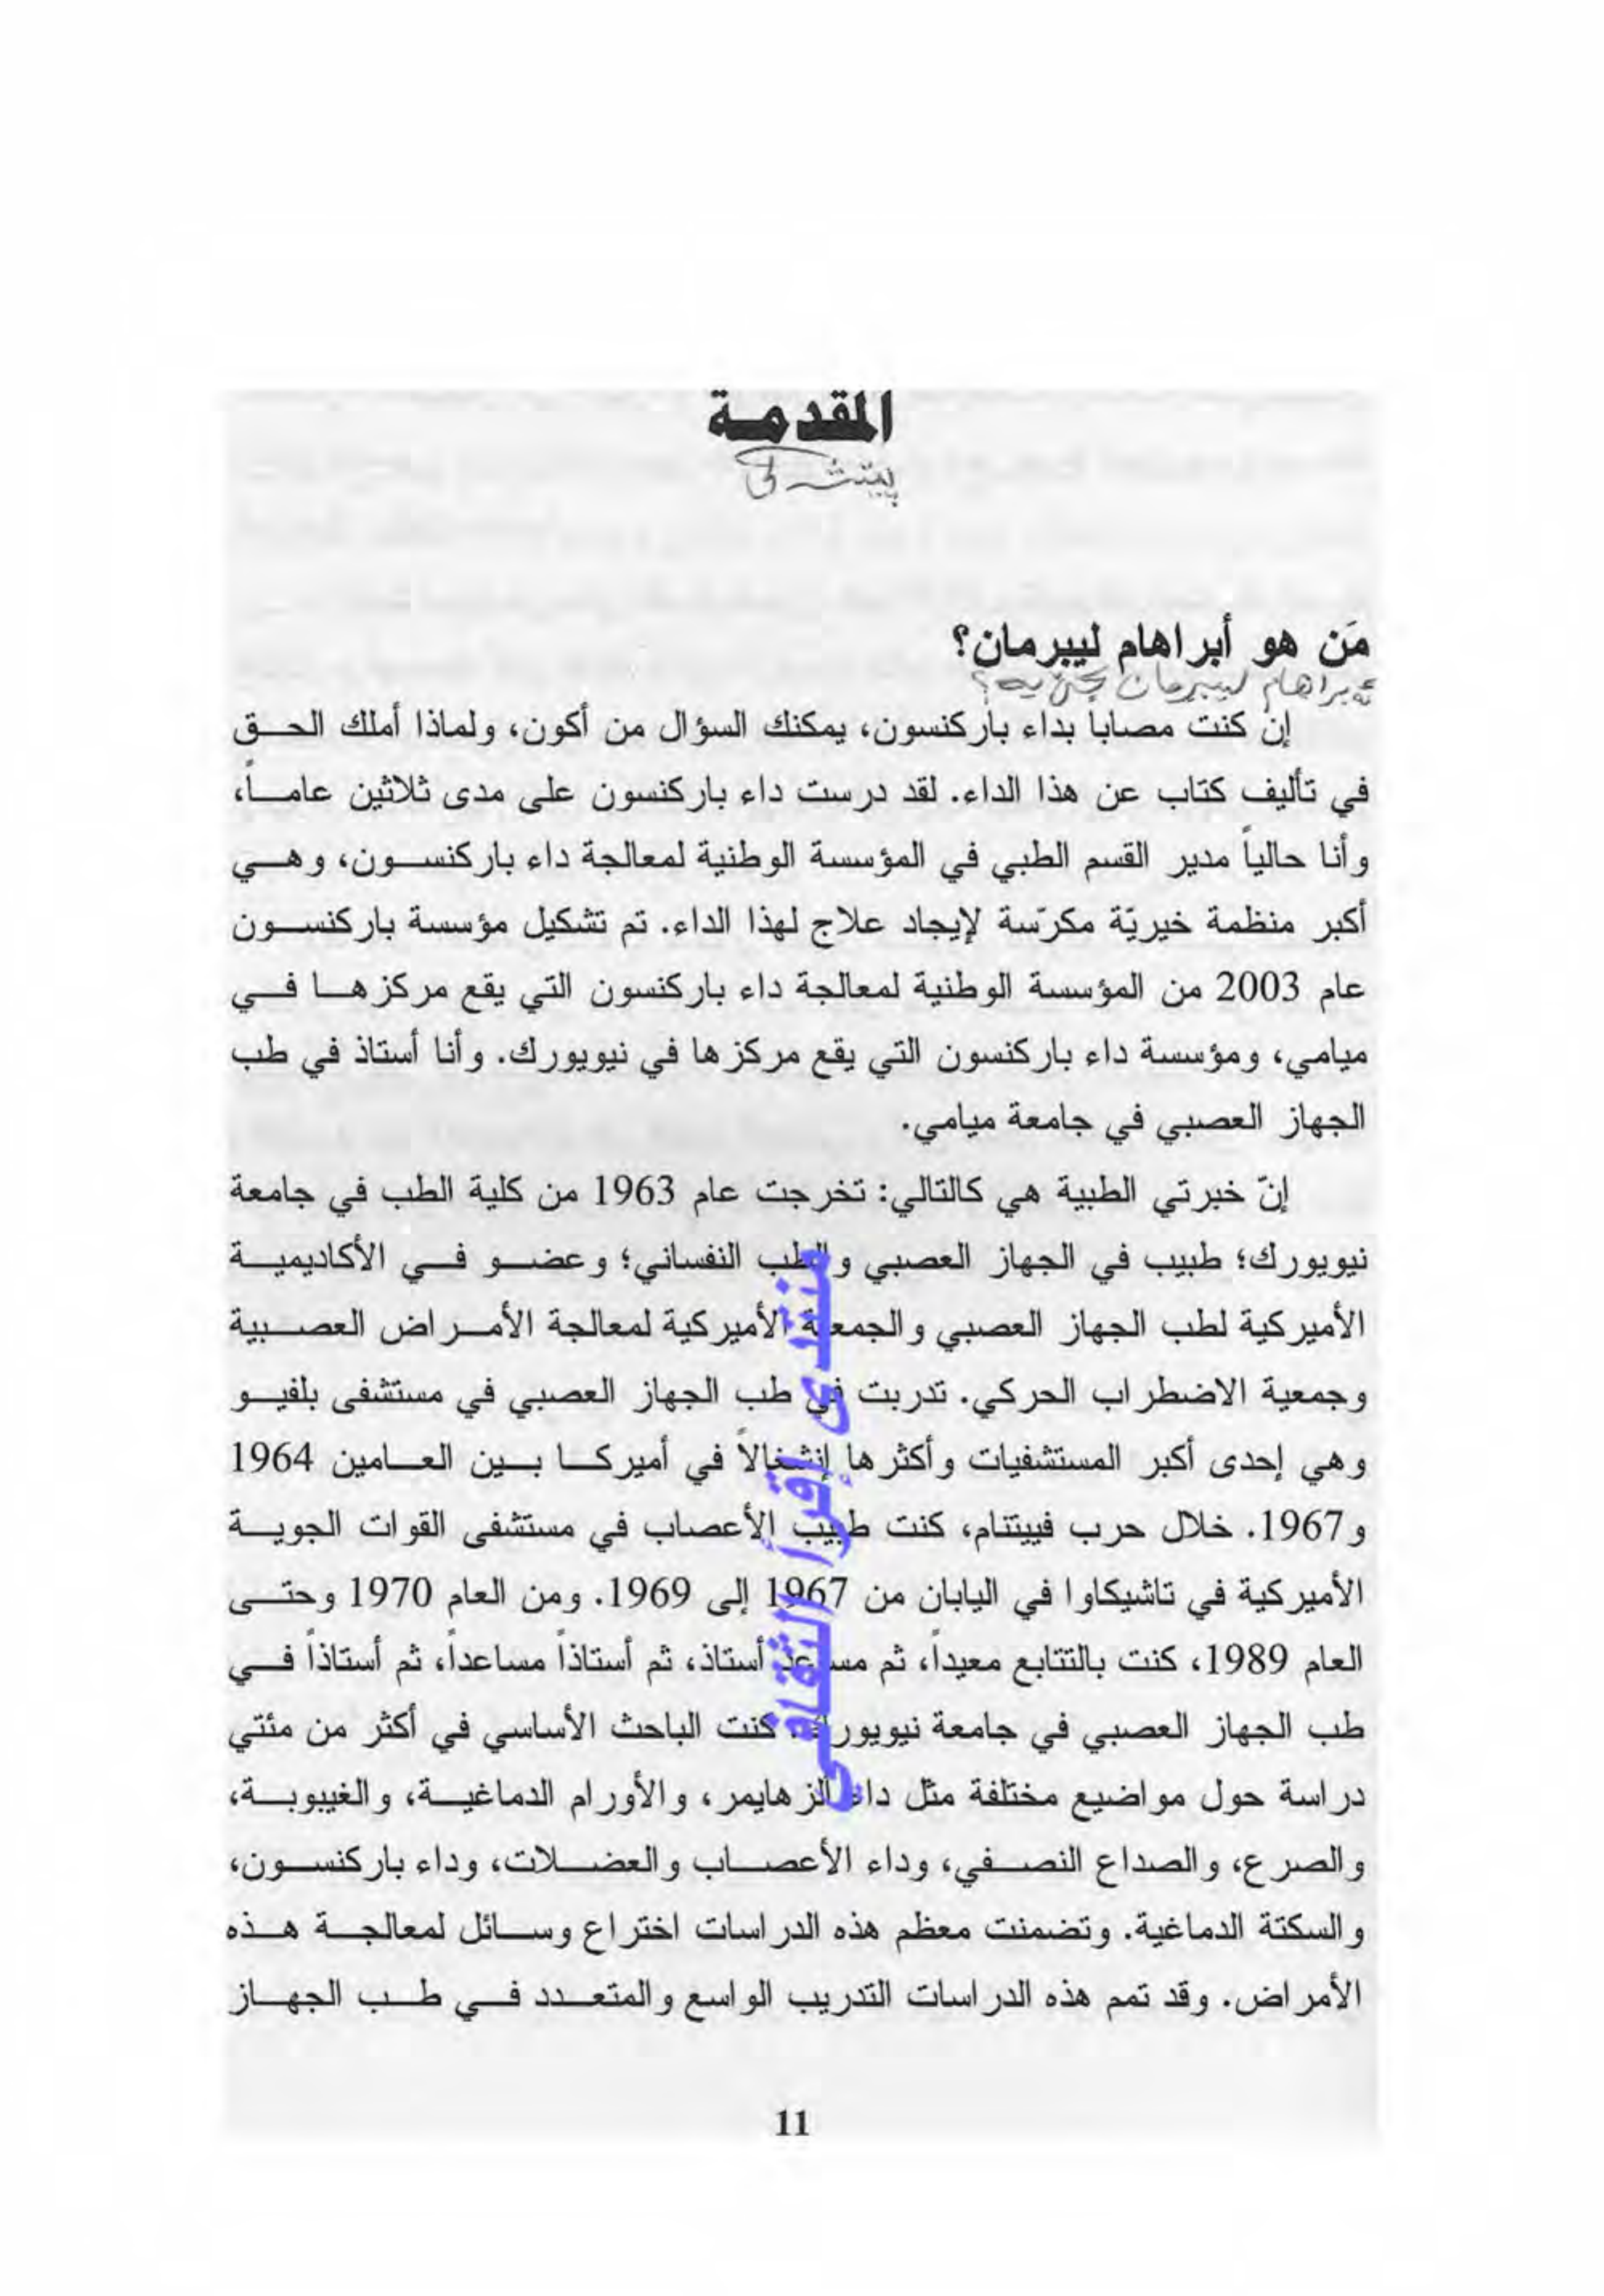 المقدمة
مَن هو أبراهام ليبرمان؟
إن كنت مصاباً بداء باركنسون، يمكنك السؤال من أكون، ولماذا أملك الحق
في تأليف كتاب عن هذا الداء. لقد درست داء باركنسون على مدى ثلاثين عاماً،
وأنا حالياً مدير القسم الطبي في المؤسسة الوطنية لمعالجة داء باركنسون، وهي
أكبر منظمة خيريّة مكرّسة لإيجاد علاج لهذا الداء. تم تشكيل مؤسسة باركنسون
عام 2003 من المؤسسة الوطنية لمعالجة داء باركنسون التي يقع مركزها في
ميامي، ومؤسسة داء باركنسون التي يقع مركزها في نيويورك. وأنا أستاذ في طب
الجهاز العصبي في جامعة ميامي.
إنّ خبرتي الطبية هي كالتالي: تخرجت عام 1963 من كلية الطب في جامعة
نيويورك؛ طبيب في الجهاز العصبي والطب النفساني؛ وعضو في الأكاديمية
الأميركية لطب الجهاز العصبي والجمعية الأميركية لمعالجة الأمراض العصبية
وجمعية الاضطراب الحركي. تدربت في طب الجهاز العصبي في مستشفى بلفيو
وهي إحدى أكبر المستشفيات وأكثرها إنشغالاً في أميركا بين العامين 1964
و1967. خلال حرب فييتنام، كنت طبيب الأعصاب في مستشفى القوات الجوية
الأميركية في تاشيكاوا في اليابان من 1967 إلى 1969. ومن العام 1970 وحتى
العام 1989، كنت بالتتابع معيداً، ثم مساعد أستاذ، ثم أستاذاً مساعداً، ثم أستاذاً في
طب الجهاز العصبي في جامعة نيويورك. كنت الباحث الأساسي في أكثر من مئتي
دراسة حول مواضيع مختلفة مثل داء ألزهايمر، والأورام الدماغية، والغيبوبة،
والصرع، والصداع النصفي، وداء الأعصاب والعضلات، وداء باركنسون،
والسكتة الدماغية. وتضمنت معظم هذه الدراسات اختراع وسائل لمعالجة هذه
الأمراض. وقد تمم هذه الدراسات التدريب الواسع والمتعدد في طب الجهاز
منتدى إقرأ الثقافي
11